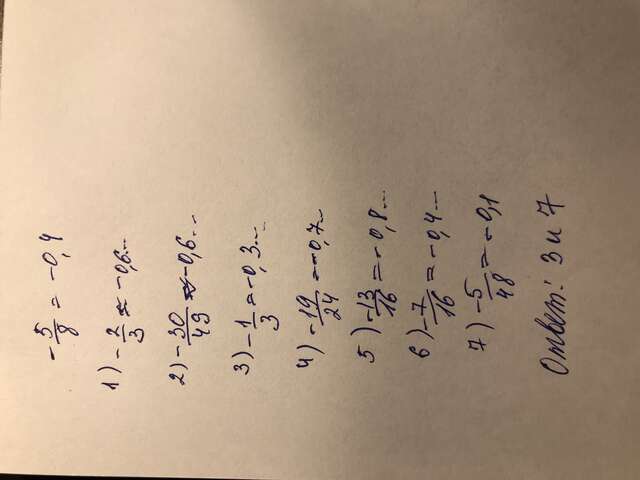 -5/8 = -0,4
1) -2/3 ≈ -0,6...
2) -30/49 ≈ -0,6...
3) -1/3 = -0,3...
4) -19/24 = -0,7..
5) -13/16 = -0,8...
6) -7/16 = -0,4...
7) -5/48 = -0,1
Ответ: 3 и 7